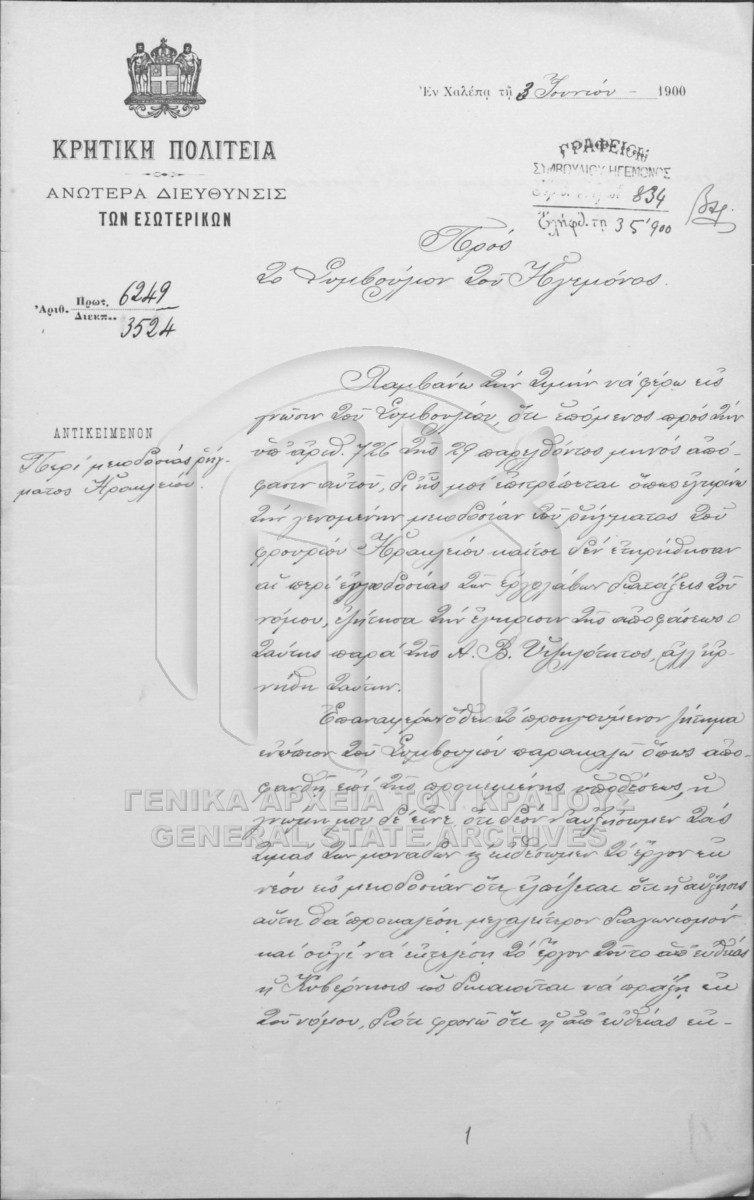 Ἐν Χαλέπᾳ τῇ 3 Ἰουνίου - 1900
ΚΡΗΤΙΚΗ ΠΟΛΙΤΕΙΑ
ΑΝΩΤΕΡΑ ΔΙΕΥΘΥΝΣΙΣ
ΤΩΝ ΕΣΩΤΕΡΙΚΩΝ
ΓΡΑΦΕΙΟΝ
ΣΥΜΒΟΥΛΙΟΥ ΗΓΕΜΟΝΟΣ
834
Ἐλήφθ. τῃ 3 5' 900
Ἀριθ. Πρωτ. 6249
Διεκπ. 3524
Πρὸς
τὸ Συμβούλιον τοῦ Ἡγεμόνος.
ΑΝΤΙΚΕΙΜΕΝΟΝ
Περὶ μειοδοσίας ῥήγ-
ματος Ἡρακλείου.
Λαμβάνω τὴν τιμὴν νὰ φέρω εἰς
γνῶσιν τοῦ Συμβουλίου, ὅτι ἑπόμενος πρὸς τὴν
ὑπ' ἀριθ. 726 τῆς 29 παρελθόντος μηνὸς ἀπό-
φασιν αὐτοῦ, δι' ἧς μοὶ ἐπιτρέπεται ὅπως ἐγκρίνω
τὴν γενομένην μειοδοσίαν τοῦ ῥήγματος τοῦ
φρουρίου Ἡρακλείου καίτοι δὲν ἐτηρήθησαν
αἱ περὶ ἐργοδοσίας τῶν ἐργολάβων διατάξεις τοῦ
νόμου, ἐζήτησα τὴν ἔγκρισιν τῆς ἀποφάσεως
ταύτης παρὰ τῆς Α. Β. Ὑψηλότητος, ἀλλ' ἠρ-
νήθη ταύτην.
Ἐπαναφέρων ὅθεν τὸ προηγούμενον ζήτημα
ἐνώπιον τοῦ Συμβουλίου παρακαλῶ ὅπως ἀπο-
φανθῇ ἐπὶ τῆς προκειμένης ὑποθέσεως, ἡ
γνώμη μου δὲ εἶνε ὅτι δέον ν' αὐξήσωμεν τὰς
τιμὰς τῶν μονάδων κ' ἐκθέσωμεν τὸ ἔργον ἐκ
νέου εἰς μειοδοσίαν ὅτε ἐλπίζεται ὅτι ἡ αὔξησις
αὕτη θὰ προκαλέσῃ μεγαλείτερον διαγωνισμὸν
καὶ οὐχὶ νὰ ἐκτελέσῃ τὸ ἔργον τοῦτο ἀπ' εὐθείας
ἡ Κυβέρνησις ὡς δικαιοῦται νὰ πράξῃ ἐκ
τοῦ νόμου, διότι φρονῶ ὅτι ἡ ἀπ' εὐθείας ἐκ-
ΓΕΝΙΚΑ ΑΡΧΕΙΑ ΤΟΥ ΚΡΑΤΟΥΣ
GENERAL STATE ARCHIVES
1